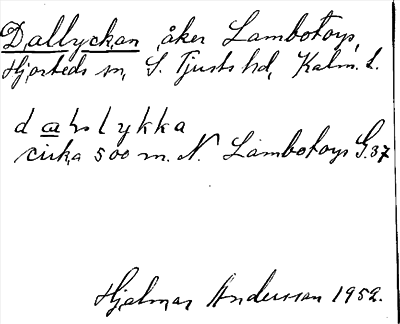 Dallyckan åker Lambotorp,
Hjorteds sn, S. Tjusts hd, Kalm. l.
dalslykka
cirka 500 m. N. Lambotorps G. 37
Hjalmar Andersson 1952.